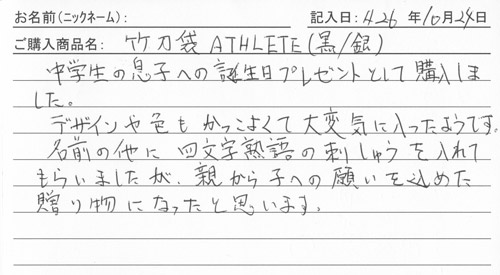 お名前(ニックネーム): 記入日: H26 年10月24日
ご購入商品名: 竹刀袋 ATHLETE(黒/銀)
中学生の息子への誕生日プレゼントとして購入しま
した。
デザインや色もかっこよくて大変気に入ったようです。
名前の他に 四文字熟語の刺しゅうを入れて
もらいましたが、親から子への願いを込めた
贈り物になったと思います。